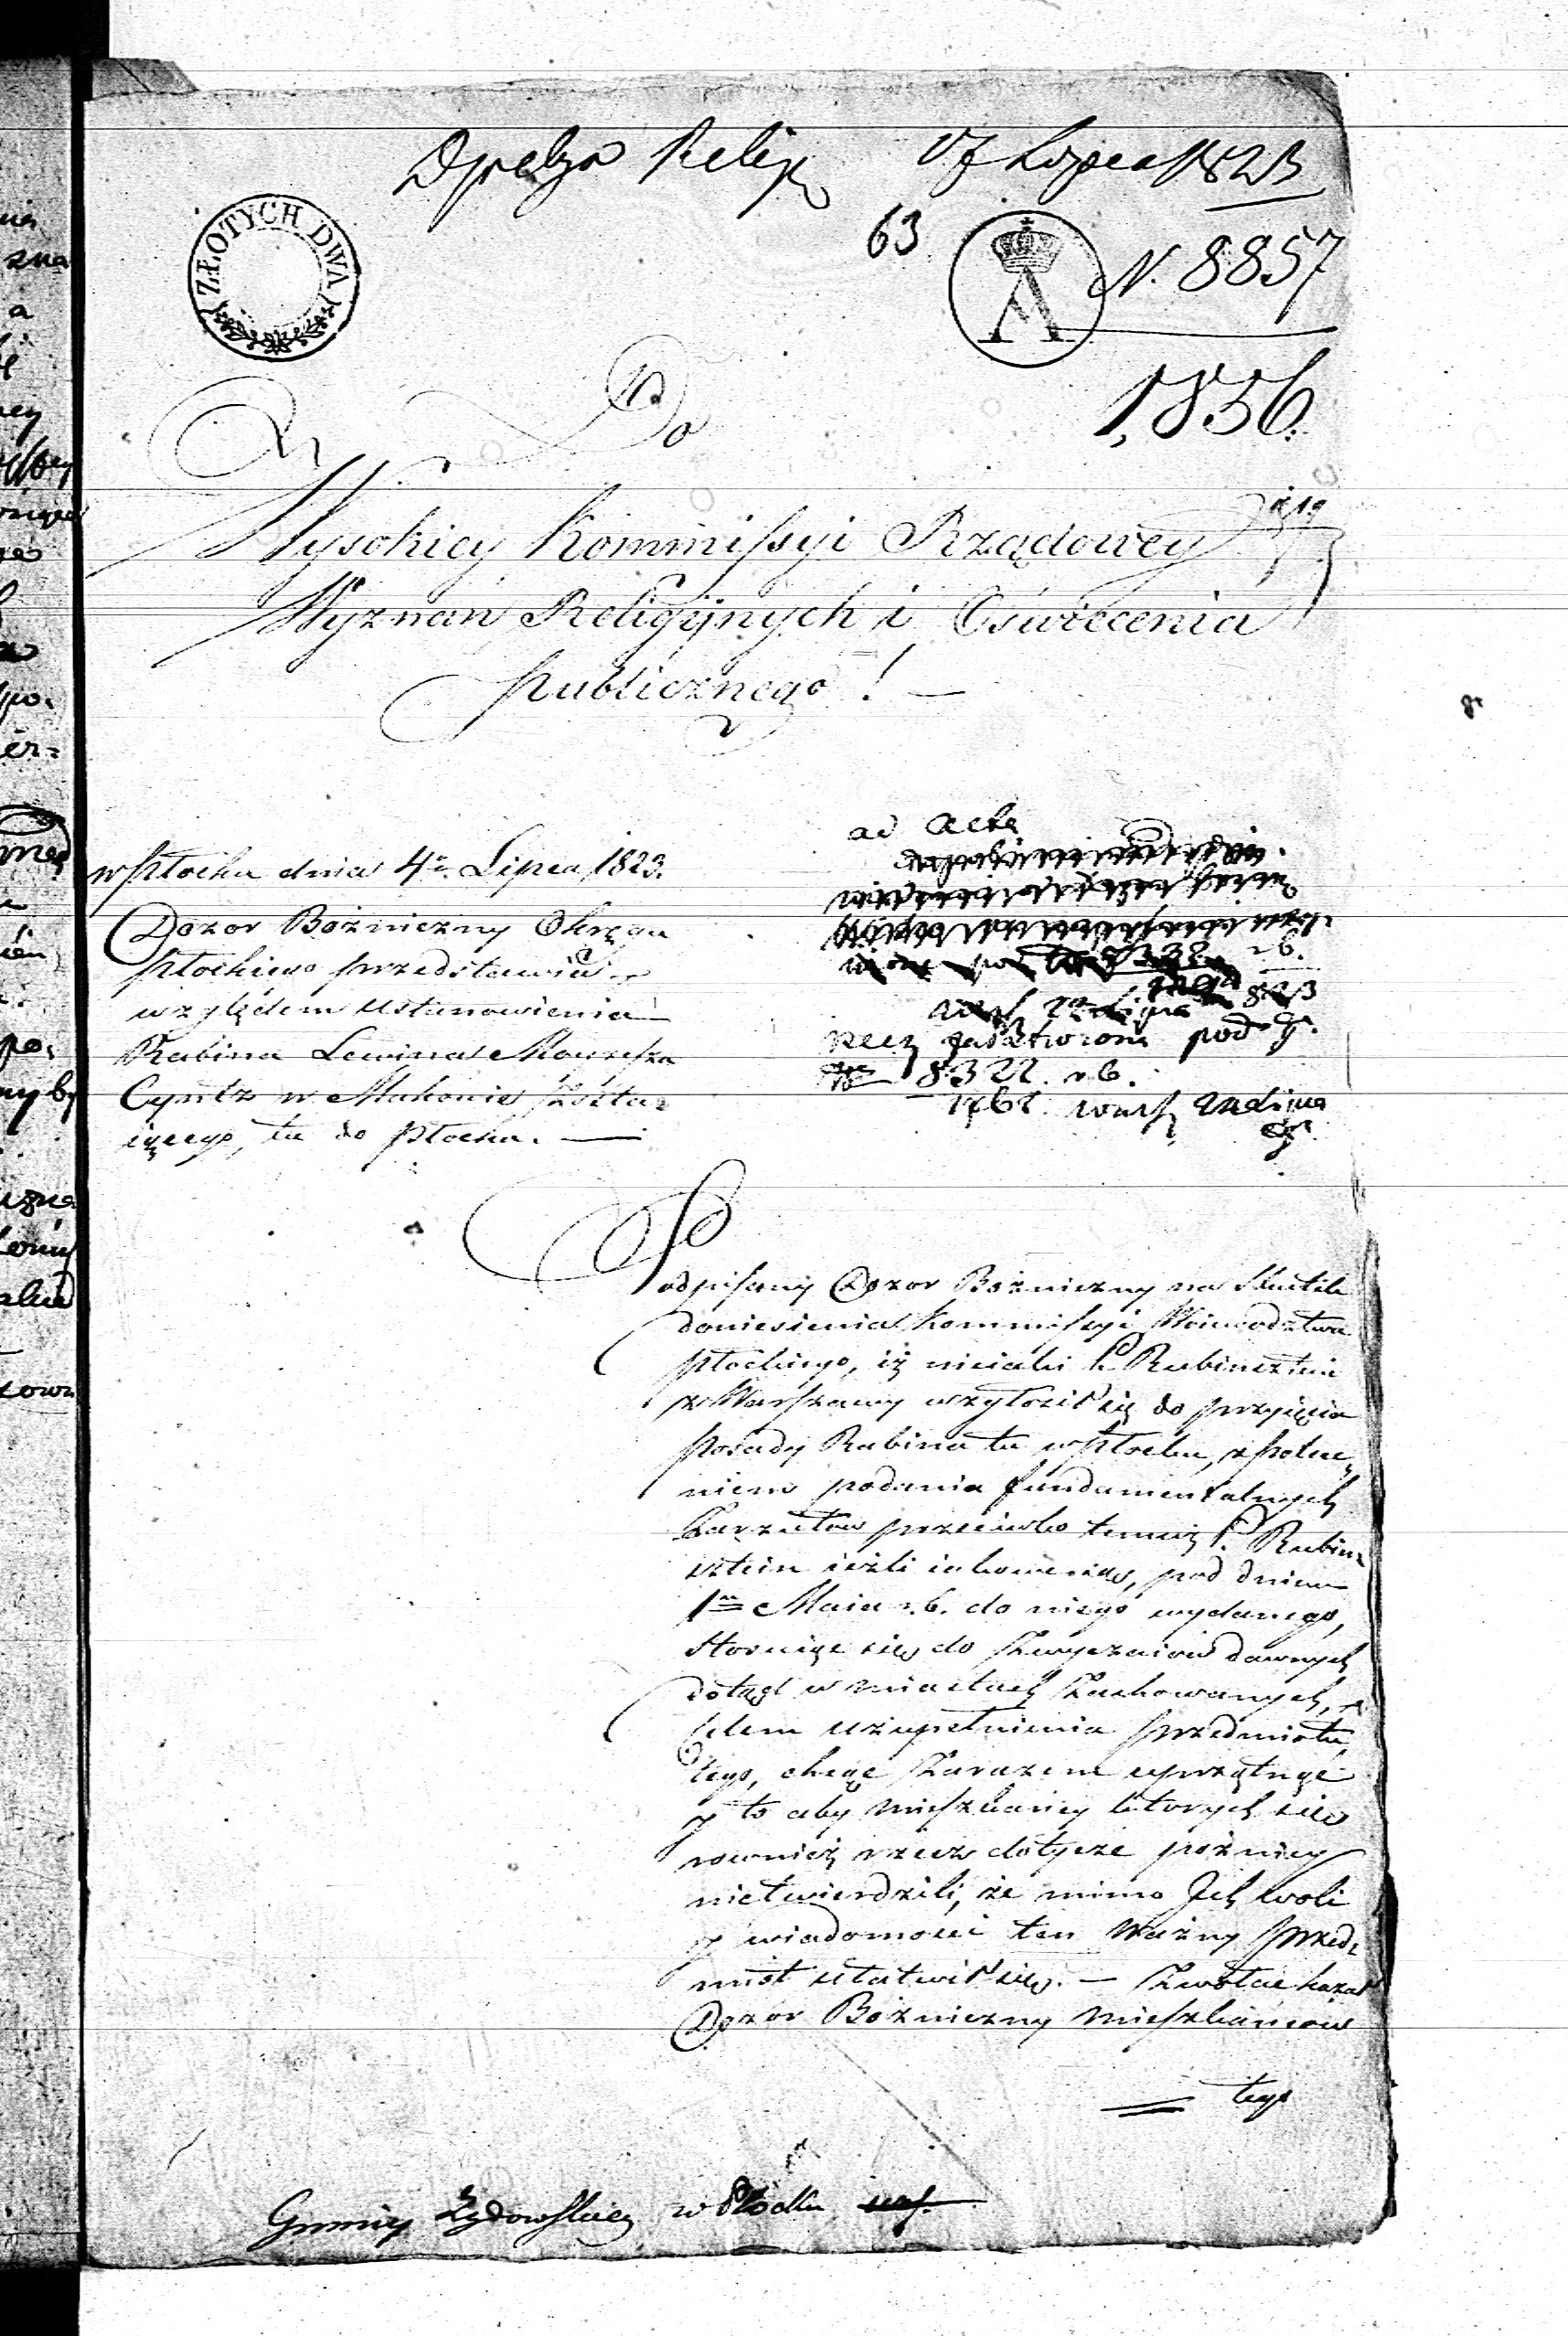 17 Lipca 1823
ZŁOTYCH DWA
63
N. 8857
1,836.
Do
Wysokiey Kommissyi Rządowey
Wyznań Religiynych i Oświecenia
publicznego! —
ad acta
w Płocku dnia 4go Lipca 1823.
Dozor Bożniczny Okręgu
Płockiego przedstawia
względem ustanowienia
Rabina Lewina Moyżesza
Cyntz w Makowie zosta=
iącego, tu do Płocka. —
rzecz załatwiona pod d.
8322. r b.
1762.
Podpisany Dozor Bożniczny na skutek
doniesienia Kommissyi Woiewodztwa
Płockiego, iż nieiaki P. Rubinsztein
z Warszawy zgłosił się do przyięcia
posady Rabina tu w Płocku, z polece=
niem podania fundamentalnych
Zarzutow przeciwko temuż P. Rubin=
sztein ieżli iakowe są, pod dniem
1m Maia r. b. do niego wydanego,
stosuiąc się do zwyczaiow dawnych
dotąd w miastach zachowanych,
Celem uzupełnienia przedmiotu
tego, chcąc zarazem uprzątnąć
y to aby mieszkańcy których się
rownież rzecz dotycze pożniey
nietwierdzili, że mimo Ich woli
y wiadomości ten ważny przed=
miot ułatwił się. — Zwołać kazał
Dozor Bożniczny mieszkańcow
= tego
Gminy Żydowskiey w Płocku